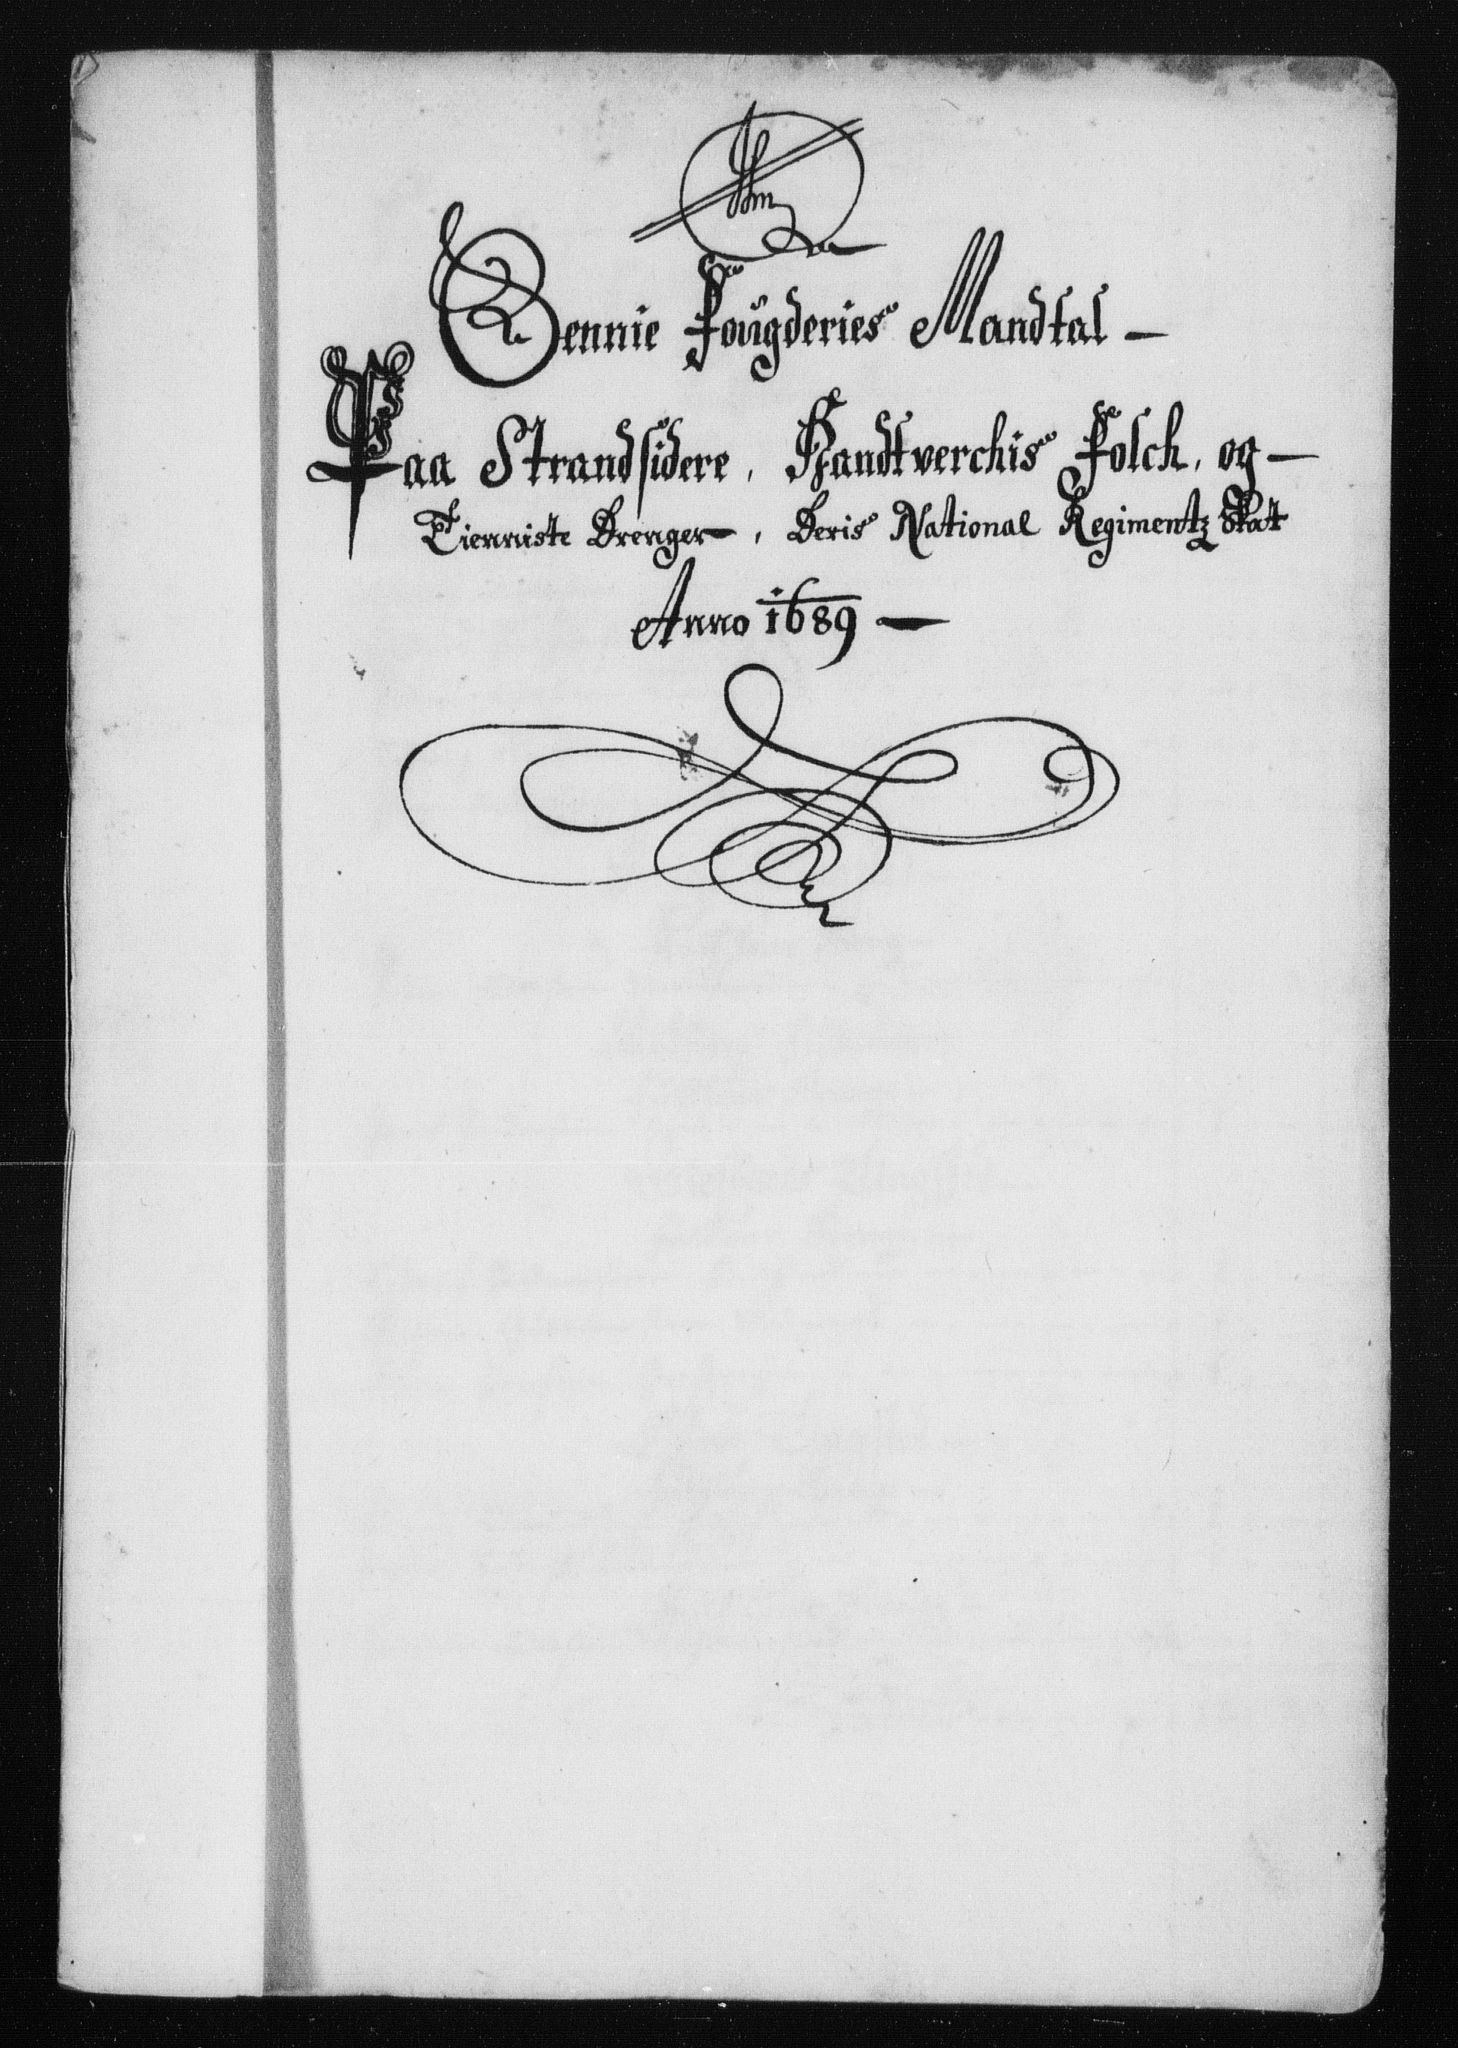 Sennie Foŭgderies Mandtal —
Paa Strandsidere, Handtverchis Folch, og —
Tienniste Drenger, Deris National Regimentz Skat
Anno 1689 —